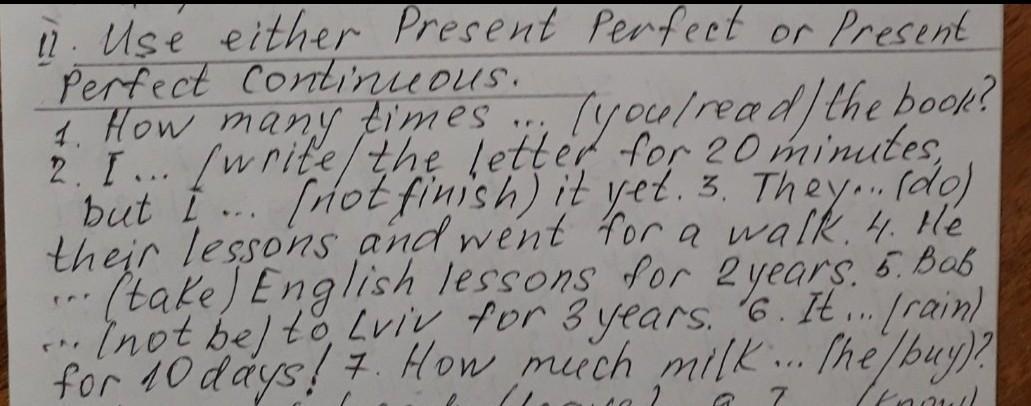 II. Use either Present Perfect or Present
Perfect Continuous.
1. How many times ... (you/read) the book?
2. I ... (write) the letter for 20 minutes,
but I ... (not finish) it yet. 3. They ... (do)
their lessons and went for a walk. 4. He
... (take) English lessons for 2 years. 5. Bob
... (not be) to Lviv for 3 years. 6. It ... (rain)
for 10 days! 7. How much milk ... (he/buy)?